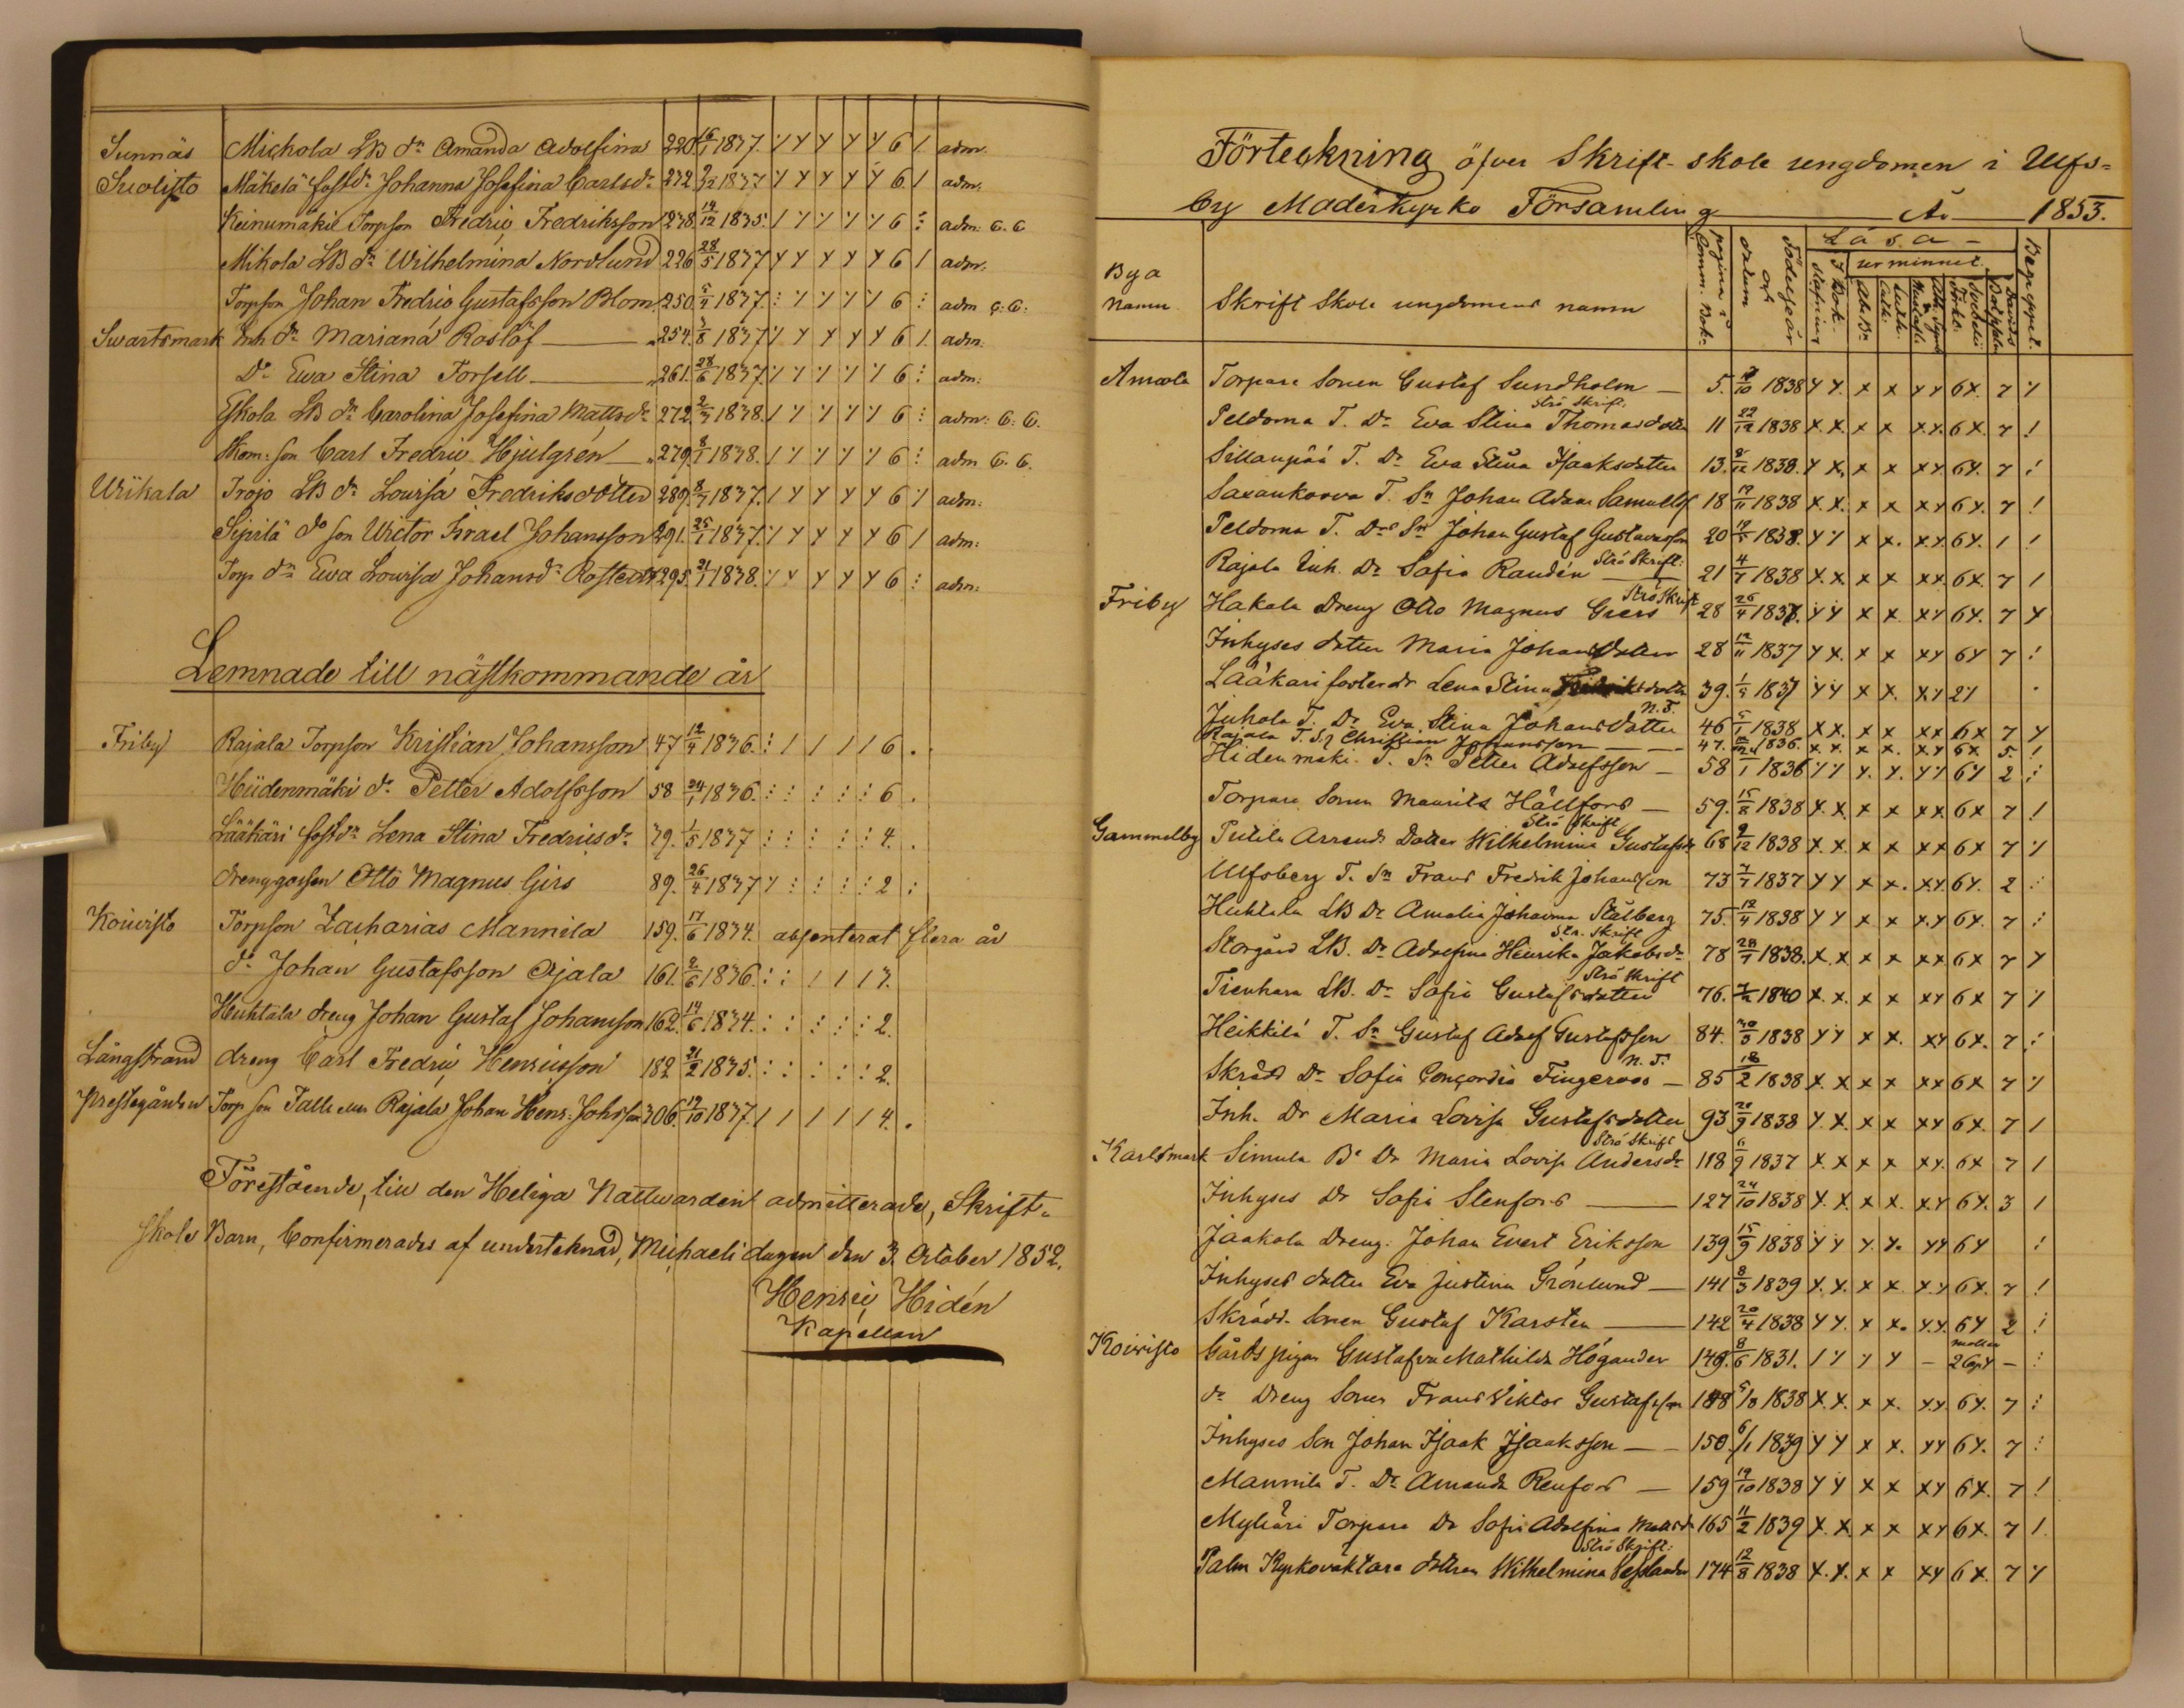 Sunnäs Michola LB dr Amanda Adolfina 220 16/1 1837. adm.
Suolisto Mäkelä fostdr Johanna Josefina Carlsdr 272 9/12 1837 6. adm.
Keinumäki Torpson Fredric Fredriksson 238. 19/12 1835. 6 adm: 6. 6
Mikola LB dr Wilhelmina Nordlund 226 28/5 1837 6 adm.
Torpson Johan Fredric Gustafsson Blom. 250. 5/4 1837. 6 adm 6: 6:
Swartsmark Inh dr Mariana Roslöf 254. 3/8 1837 6 adm.
Do Ewa Stina Forsell 261. 28/6 1837. 6 adm:
Eskola LB dr Carolina Josefina Mattsdr 272. 2/3 1838. 6 adm: 6: 6.
Skom: son Carl Fredric Hjulgren 279. 8/1 1838. 6 adm 6. 6.
Wiikala Irojo LB dr Lowisa Fredriksdotter 289. 8/7 1837. 6 adm:
Sipilä do son Wictor Israel Johansson 291. 25/1 1837. 6 adm:
Torp dr Ewa Lowisa Johansdr Rostedt 295. 21/1 1838. 6 adm:
Lemnade till nästkommande år
Friby Rajala Torpson Kristian Johansson 47 12/4 1836. 6.
Hiidenmäki do Petter Adolfsson 58 24/1 1836. 6.
Lääkäri fostdr Lena Stina Fredricsdr 39. 1/5 1837 4.
drenggossen Otto Magnus Girs 89. 26/4 1837 2
Koiwisto Torpson Zacharias Mannila 159. 17/6 1834. absenterat flera år
do Johan Gustafsson Ojala 161. 2/6 1836. 3.
Huhtala dreng Johan Gustaf Johansson 162. 14/6 1834. 2.
Långstrand dreng Carl Fredric Henricsson 182 21/2 1835. 2.
Prestegården Torp son Rajala Johan Henr: Johsson 306. 19/10 1837. 4.
Förestående, till den Heliga Nattwarden admitterade, Skrift-
skole Barn, Confirmerades af undertecknad, Michaelidagen den 3. October 1852.
Henric Hidén
Kapellan
Förteckning öfver Skrift-skole ungdomen i Ulfs-
by Moderkyrko Församling År 1853.
Läsa
ur minnet.
Bya
namn Skrift Skole ungdomens namn pagina i Comm. Bok. Födelseår och datum I Bok. Begrepet.
Amoola Torpare Sonen Gustaf Sundholm 5. 1838 6 7
Strö Skrift.
Peldoma T. Dr Eva Stina Thomasdotter 11 22/12 1838 6 7
Sillanpää T. Dr Eva Stina Isaaksdotter 13. 8/12 1838. 6 7
Saxankorva T. Sn Johan Adam Samuelss. 18 19/11 1838 6 7
Peldoma T. Drs Sn Johan Gustaf Gustavsson 20 19/5 1838. 6
Rajala Inh. Dr Sofia Randén Strö Skrift: 21 4/7 1838 6 7
Strö Skrift
Friby Hakala Dreng Otto Magnus Giers 28 26/4 1838. 6 7
Inhyses dotter Maria Johansdotter 28 12/11 1837 6 7
Lääkari fosterdr Lena Stina 39. 1837 2
N. T.
Juhola T. Dr Eva Stina Johansdotter 46 5/1 1838 6 7
Rajala T. Sn Christian Johansson 47. 1836. 6 5.
Hidenmäki. T. Sn Petter Adolfsson 58 1836 6 2
Torpare Sonen Maurits Hällfors 59. 15/8 1838 6 7
Strö Skrift
Gammelby Putila Arrend Dotter Wilhelmina Gustafsdr 68 9/12 1838 6 7
Ulfsberg T. Sn Frans Fredrik Johansson 73 7/7 1837 6 2
Huhtala LB Dr Amalia Johanna Stålberg 75. 12/4 1838 6 7
Str. Skrift
Storgård LB. Dr Adolfina Henrika Jakobsdr 78 28/7 1838. 6 7
Strö Skrift
Tienhara LB. Dr Sofia Gustafsdotter 76. 1840 6 7
Heikkilä T. Sn Gustaf Adolf Gustafsson 84. 30/3 1838 6 7
N. T.
Skrädd Dr Sofia Concordia Fingerroos 85 18/2 1838 6 7
Inh. Dr Maria Lovisa Gustafsdotter 93 20/9 1838 6 7
Strö Skrift
Karlsmark Simula Bo Dr Maria Lovisa Andersdr 118 6/9 1837 6 7
Inhyses Dr Sofia Stenfors 127 24/10 1838 6 3
Jaakola Dreng. Johan Evert Eriksson 139 15/9 1838 6
Inhyses dotter Eva Justina Grönlund 141 8/3 1839 6 7
Skrädd. Sonen Gustaf Karsten 142 20/4 1838 6 2
Koivisto Gårds pigan Gustafva Mathilda Högander 149. 8/6 1831.
do Dreng Sonen Frans Viktor Gustafsson 148 5/10 1838 6 7
Inhyses Son Johan Isaak Isaaksson 150. 6/1 1839 6 7
Mannila T. Dr Amanda Renfors 159 19/10 1838 6 7
Myhäri Torpare Dr Sofia Adolfina Mattsdr 165 11/2 1839 6 7
Strö Skrift:
Palm Kyrkovaktare dotren Wilhelmina 174 12/8 1838 6 7